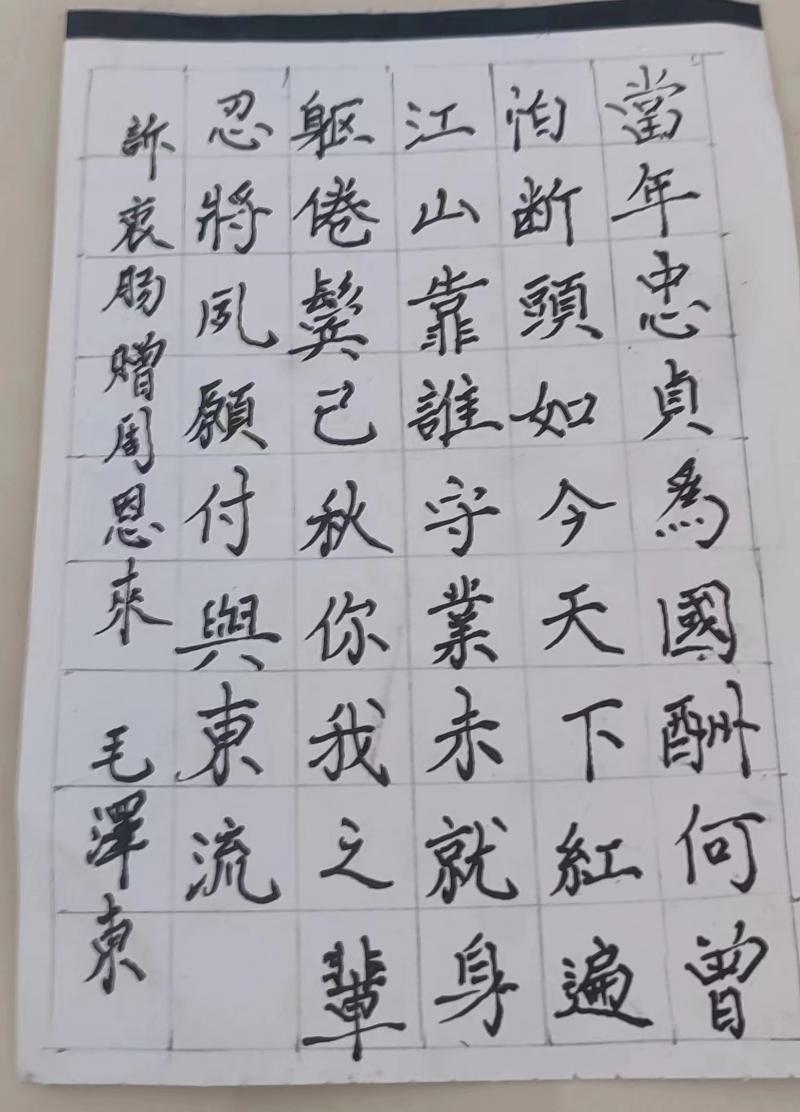 當年忠貞為國酬何曾
怕断頭如今天下紅遍
江山靠誰守業未就身
軀倦鬓已秋你我之輩
忍將夙願付與東流
訴衷肠贈周恩來 毛澤東